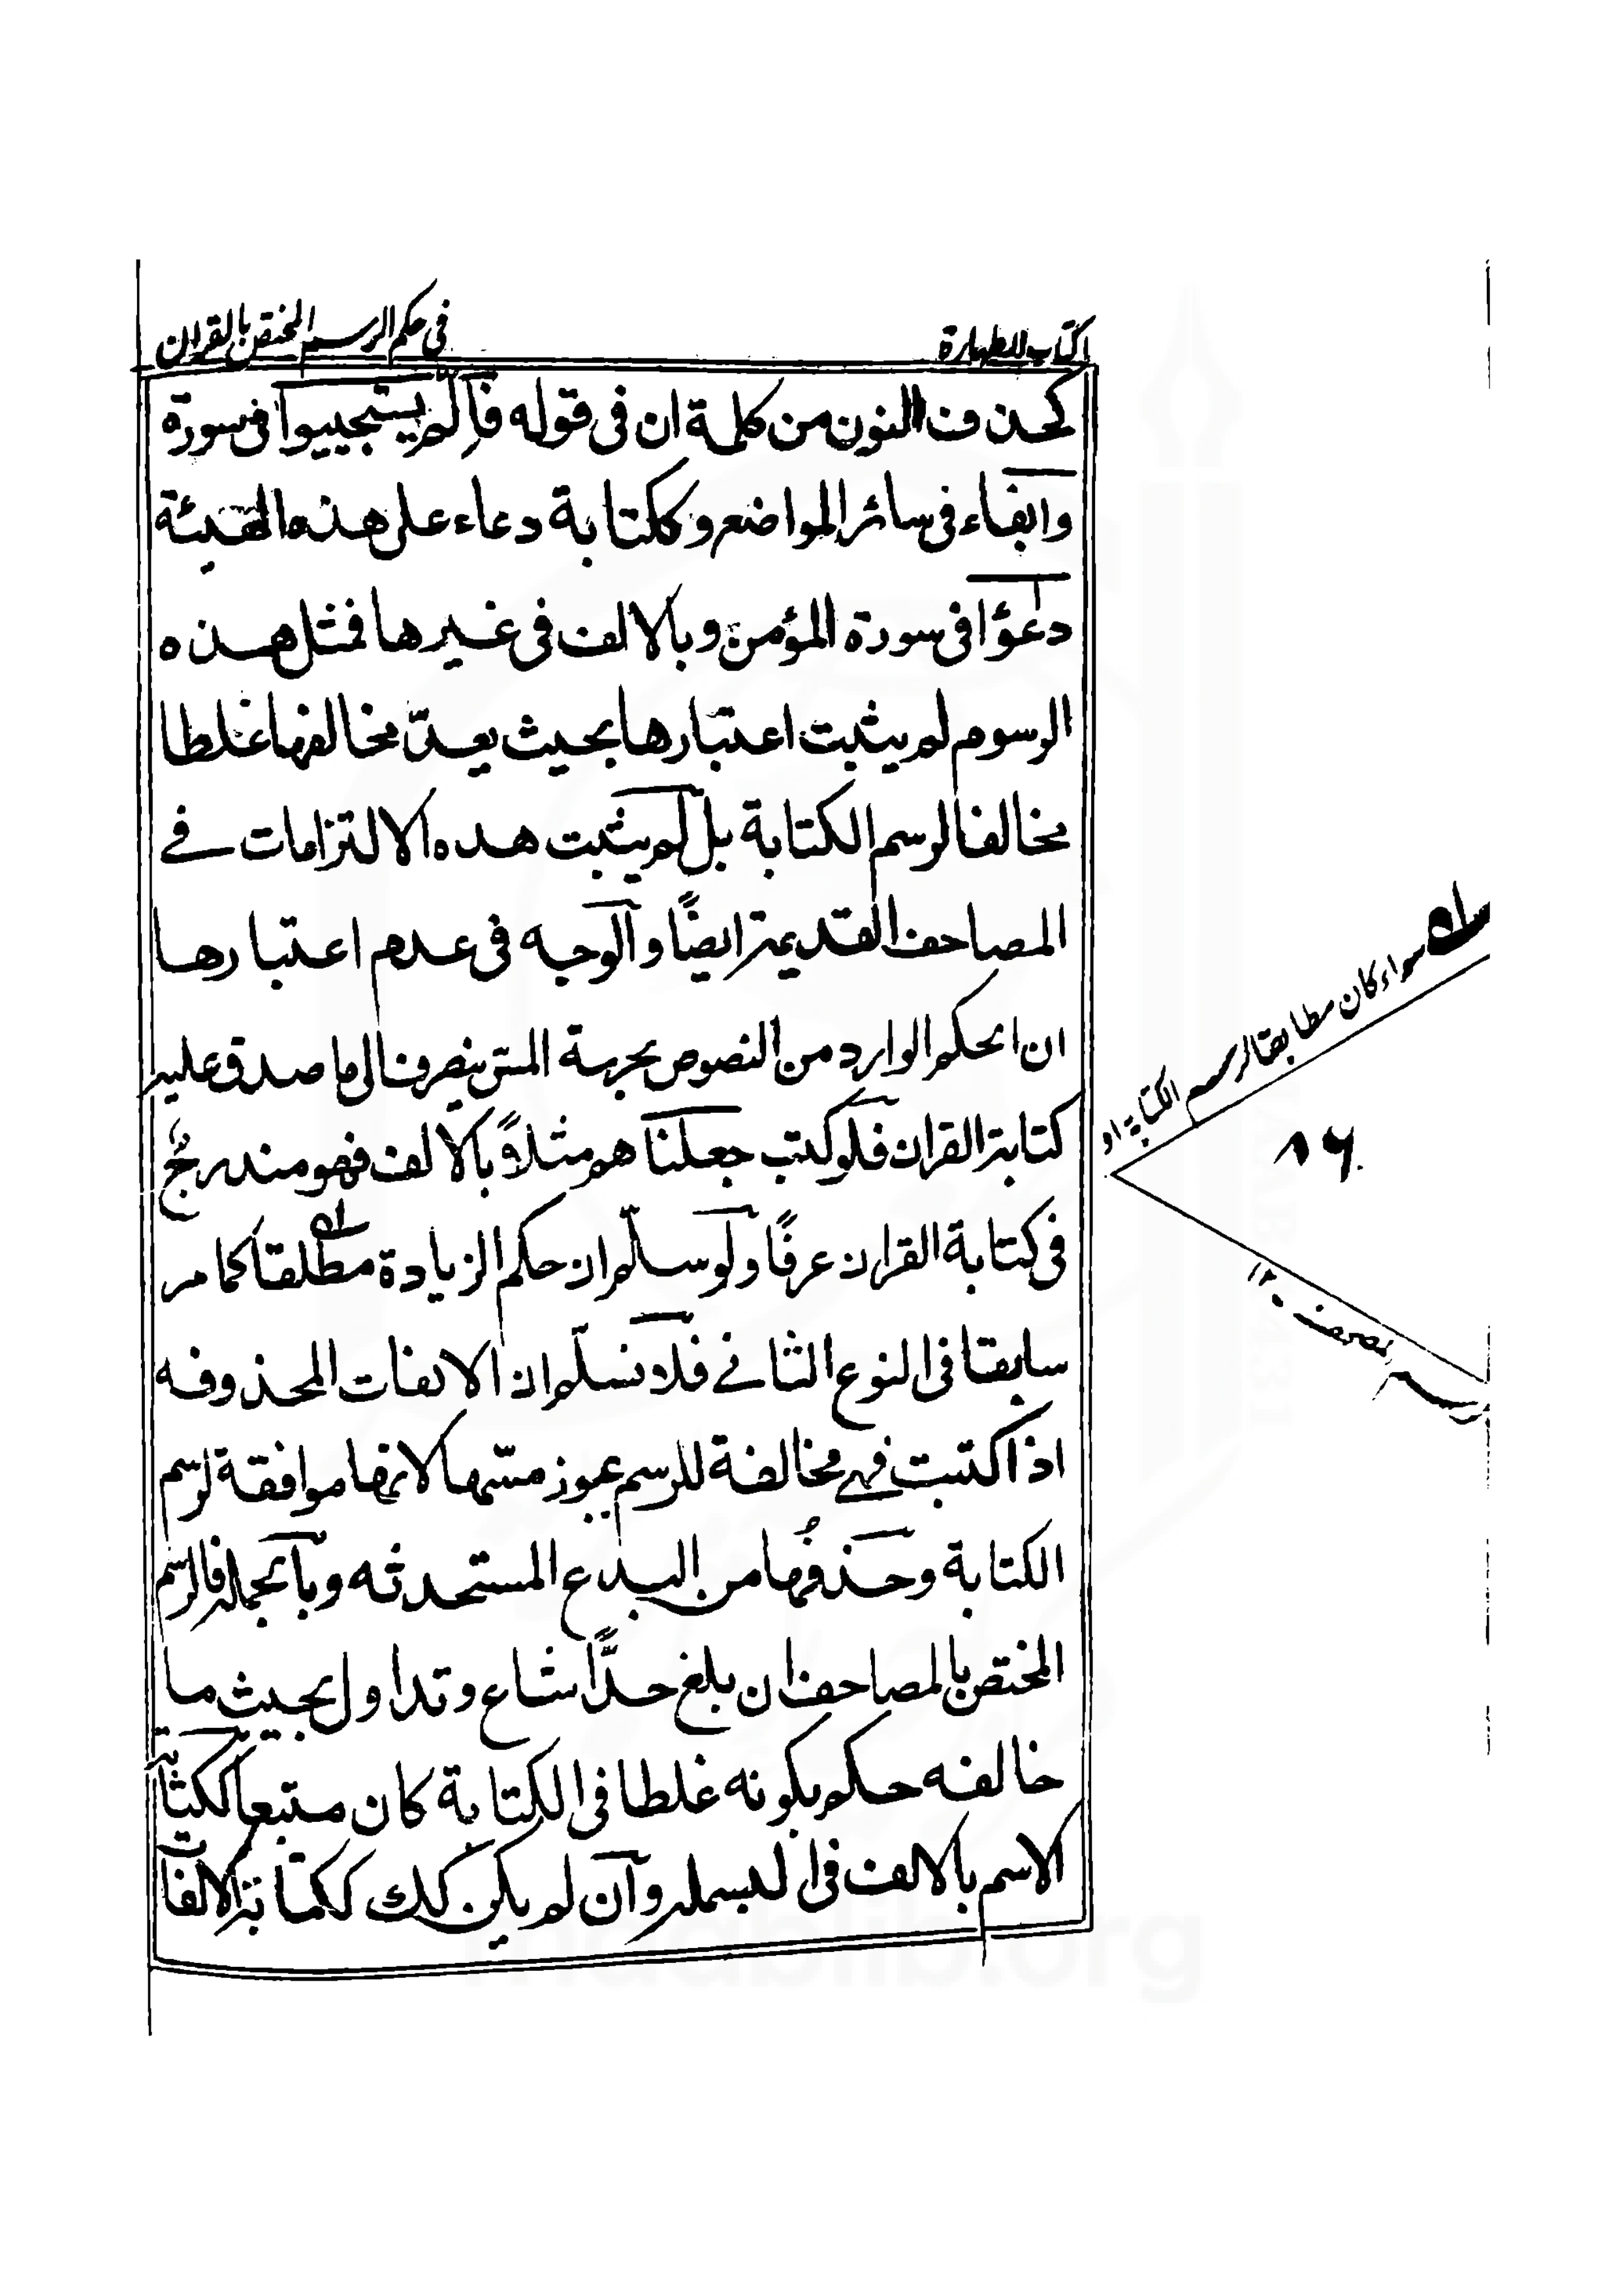 كتاب الطهارة
في حكم الرسم المختص بالقران
كحذف النون من كلمة ان في قوله فالم يستجيبوا في سورة
وابقاء في سائر المواضع وككتابة دعاء على هذه الهيئة
دعؤا في سورة المؤمن وبالالف في غيرها فمثل هذه
الرسوم لم يثبت اعتبارها بحيث يعدّ مخالفها غلطا
مخالفا لرسم الكتابة بل لم يثبت هذه الالتزامات في
المصاحف القديمة ايضًا والوجه في عدم اعتبارها
ان الحكم الوارد من النصوص بحرمة المسّ ينصرف الى ما صدق عليه
كتابة القران فلو كتب جعلنا هم مثلاً بالالف فهو مندرج
في كتابة القران عرفًا ولو سلّم ان حكم الزيادة مطلقا كما مر
سابقا في النوع الثاني فلا نسلّم ان الالفات المحذوفه
اذا كتبت فهي مخالفة للرسم يجوز مسّها لانها موافقة لرسم
الكتابة وحذفُها من البدع المستحدثه وبالجملة فالرسم
المختص بالمصاحف ان بلغ حدًّا شاع وتداول بحيث ما
خالفه حكم بكونه غلطا في الكتابة كان متبعا ككتابة
الاسم بالالف في البسملة وان لم يكن كك ككتابة الالفات
سواء كان مطابقا لرسم الكتابة او
المصحف ١٢
٨٦